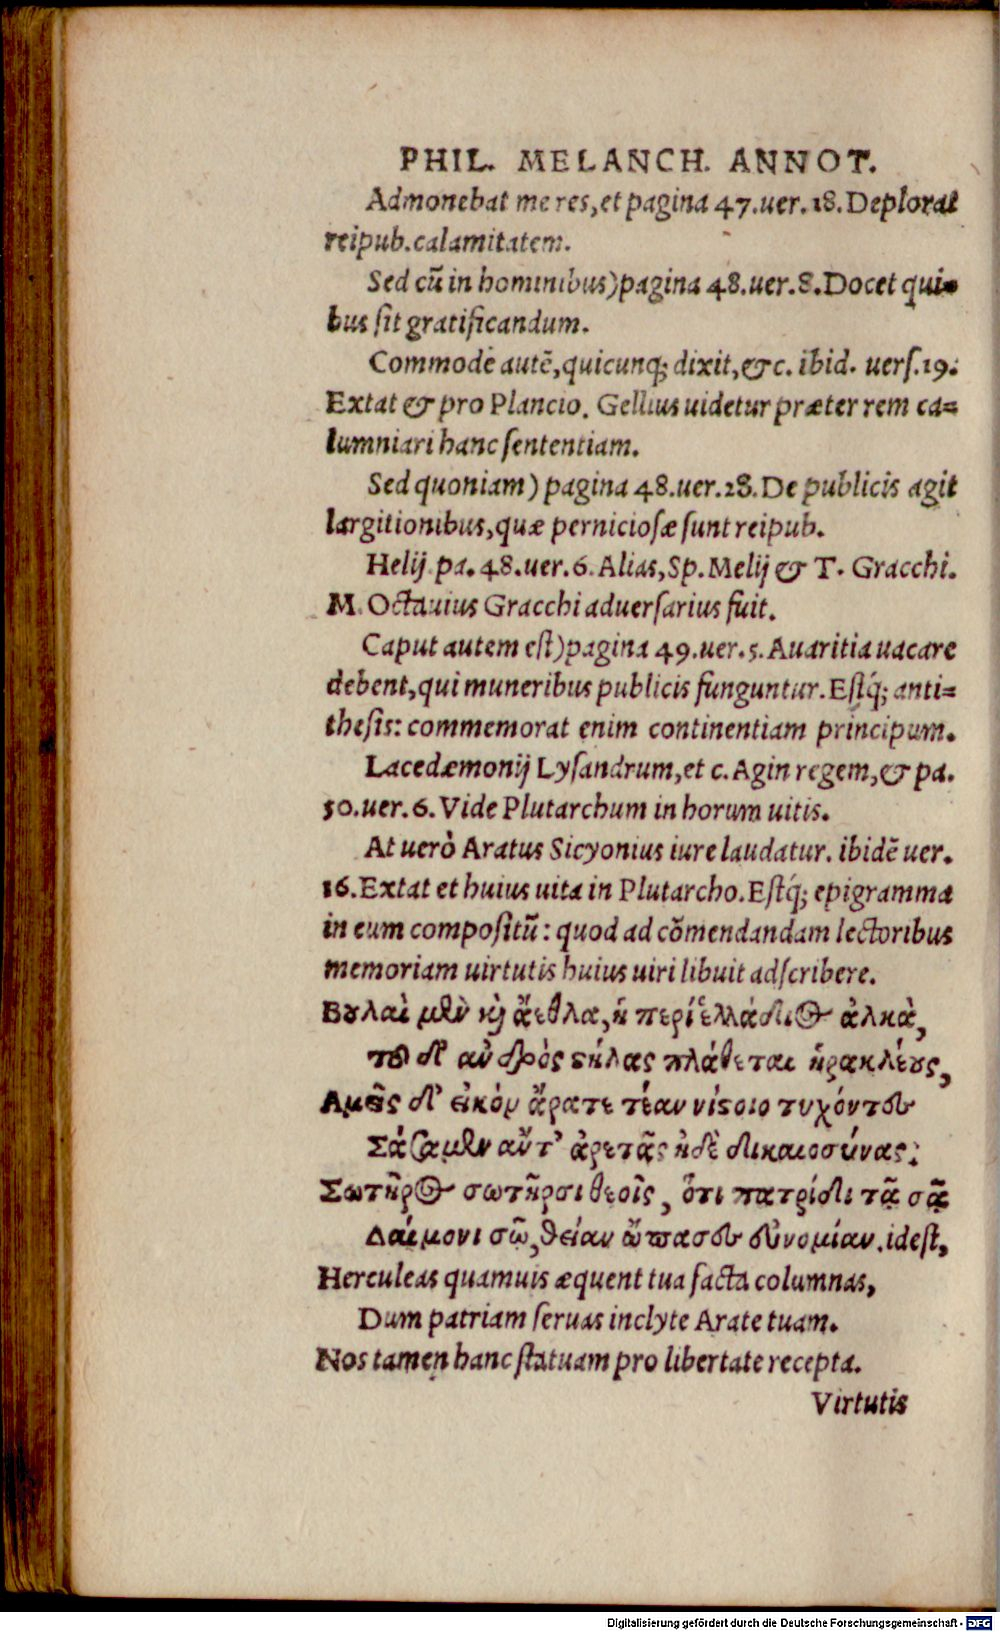 PHIL. MELANCH. ANNOT.
Admonebat me res, et pagina 47. uer. 18. Deplorat
reipub. calamitatem.
Sed cũ in hominibus) pagina 48. uer. 8. Docet qui-
bus ſit gratificandum.
Commodè autẽ, quicunq; dixit, &c. ibid. uerſ. 19.
Extat & pro Plancio. Gellius uidetur præter rem ca-
lumniari hanc ſententiam.
Sed quoniam) pagina 48. uer. 28. De publicis agit
largitionibus, quæ pernicioſæ ſunt reipub.
Helij pa. 48. uer. 6. Alias, Sp. Melij & T. Gracchi.
M. Octauius Gracchi aduerſarius fuit.
Caput autem eſt) pagina 49. uer. 5. Auaritia uacare
debent, qui muneribus publicis funguntur. Eſtq́; anti-
theſis: commemorat enim continentiam principum.
Lacedæmonij Lyſandrum, et c. Agin regem, & pa.
50. uer. 6. Vide Plutarchum in horum uitis.
At uerò Aratus Sicyonius iure laudatur. ibidẽ uer.
16. Extat et huius uita in Plutarcho. Eſtq́; epigramma
in eum compoſitũ: quod ad cõmendandam lectoribus
memoriam uirtutis huius uiri libuit adſcribere.
Βȣλαὶ μὲν κὶ ἄεθλα, ἡ περὶ ἑλλάδι⊙ ἀλκὰ,
τοῦ δ' ἀνδρὸς ϛήλας πλάθεται ἡρακλέȣς,
Αμὲς δ' εἰκόν ἄρατε τέαν νίϛοιο τυχόντες
Σάζαμεν αὔτ' ἀρετᾶς ἠδὲ δικαιοσύνας:
Σωτῆρ⊙ σωτῆρσι θεοῖς, ὅτι πατρίδι τᾷ σᾷ
Δαίμονι σῶ, θείαν ὤπασες εὐνομίαν. ideſt,
Herculeas quamuis æquent tua facta columnas,
Dum patriam ſeruas inclyte Arate tuam.
Nos tamen hanc ſtatuam pro libertate recepta.
Virtutis
Digitalisierung gefördert durch die Deutsche Forschungsgemeinschaft - DFG